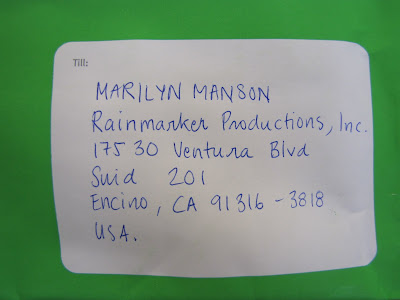 Till:
MARILYN MANSON
Rainmarker Productions, Inc.
175 30 Ventura Blvd
Suid 201
Encino, CA 91316-3818
USA.